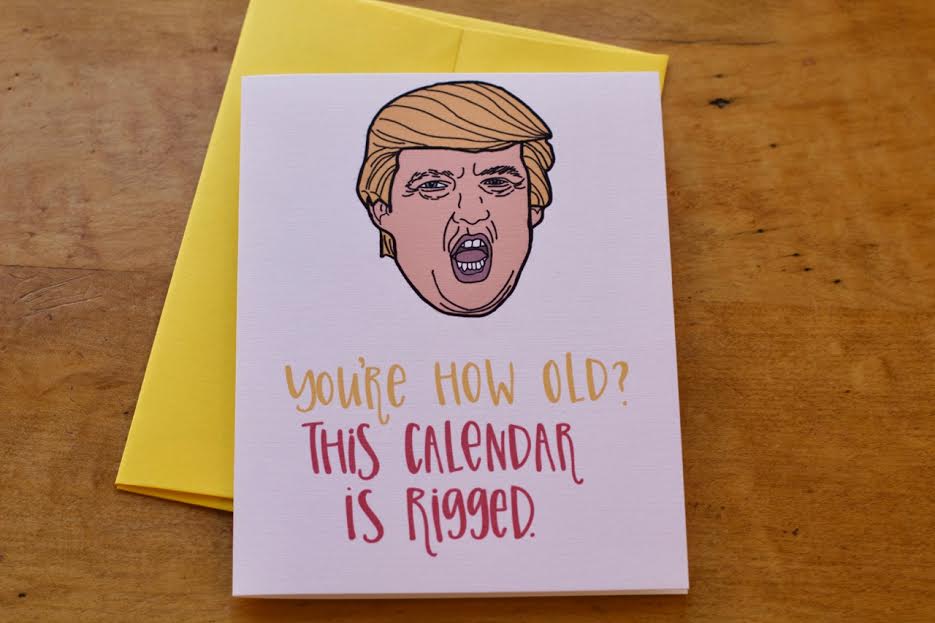 YOU'RE HOW OLD?
THIS CALENDAR
IS RIGGED.